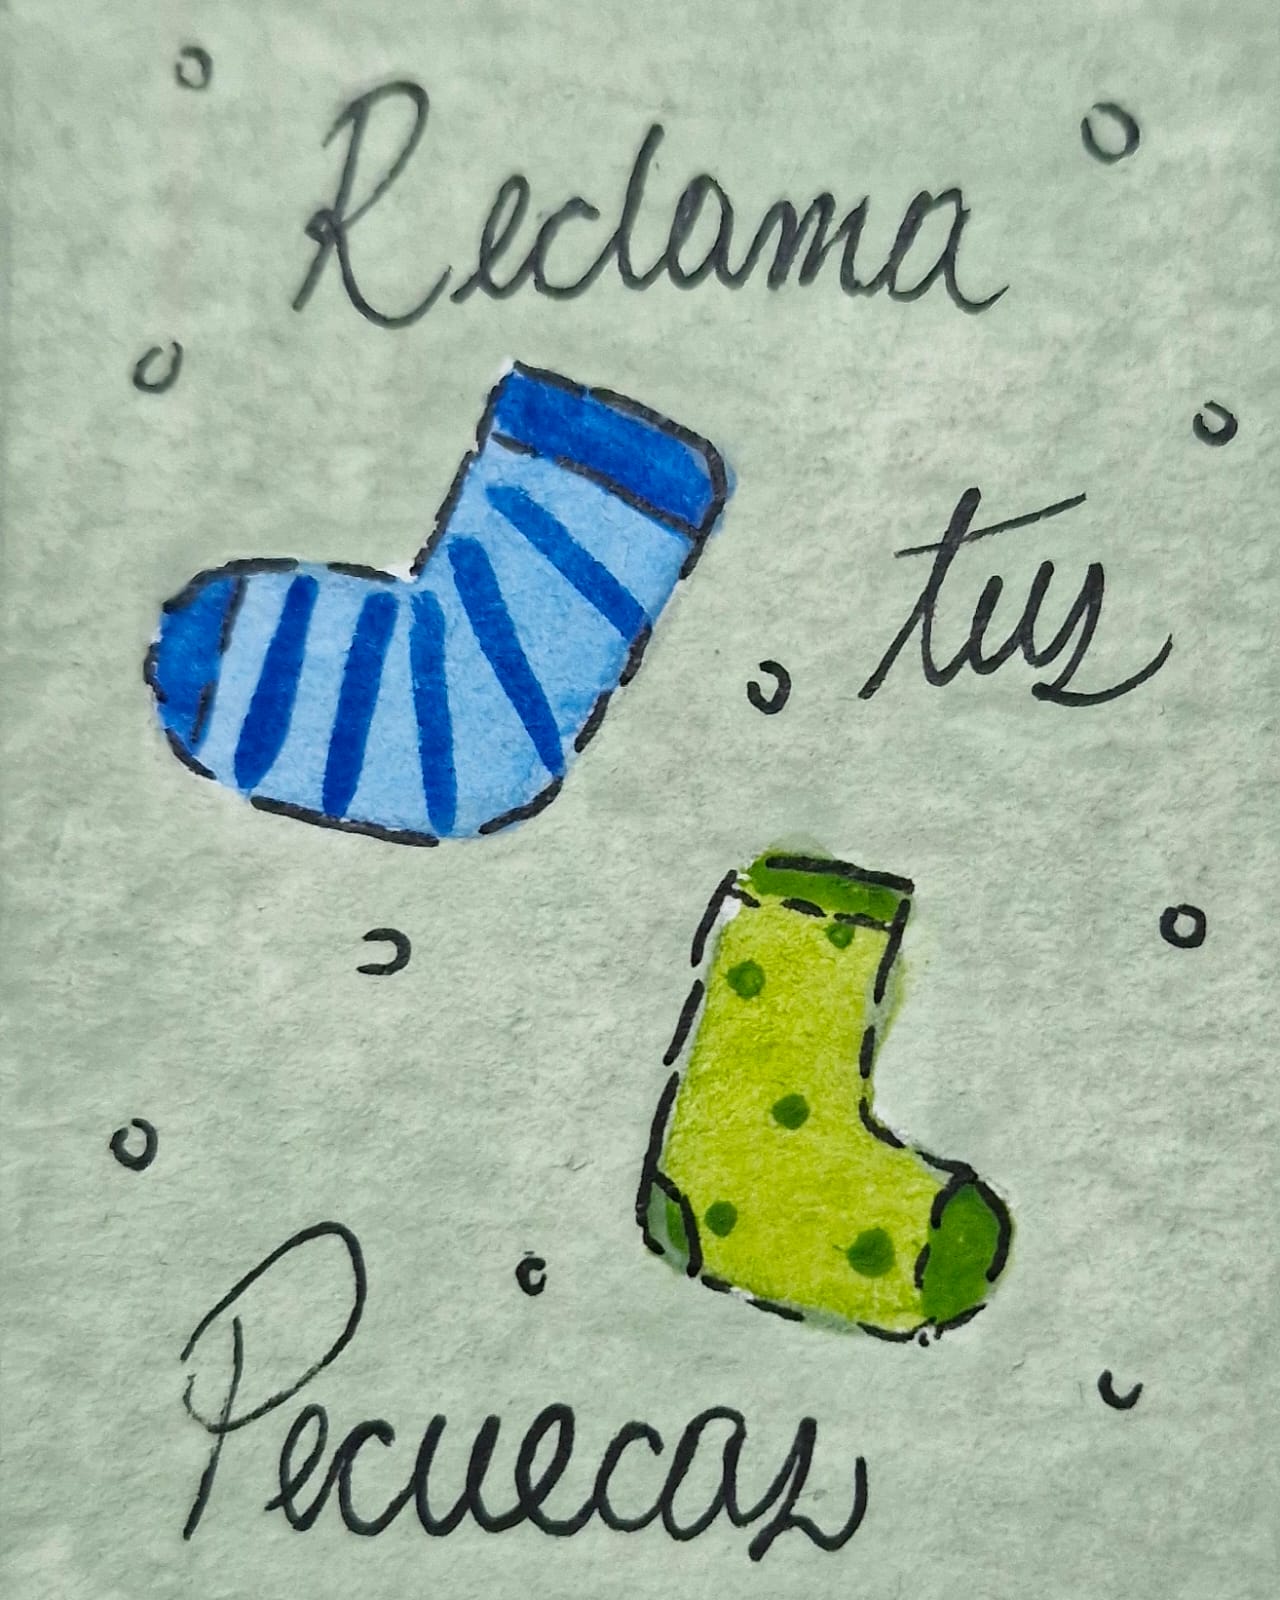 Reclama
tus
Pecuecas